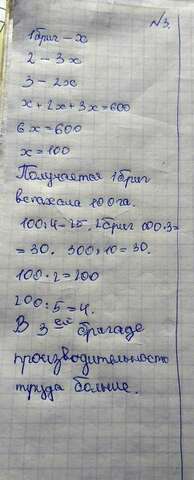 №3.
1 бриг – х
2 – 3х
3 – 2х
х + 2х + 3х = 600
6х = 600
х = 100
Получается 1 бриг
вспахала 100 га.
100:4 – 25, 2 бриг 100·3 =
= 30. 300:10 = 30.
100·2 = 200
200:5 = 4.
В 3 ей бригаде
производительность
труда больше.